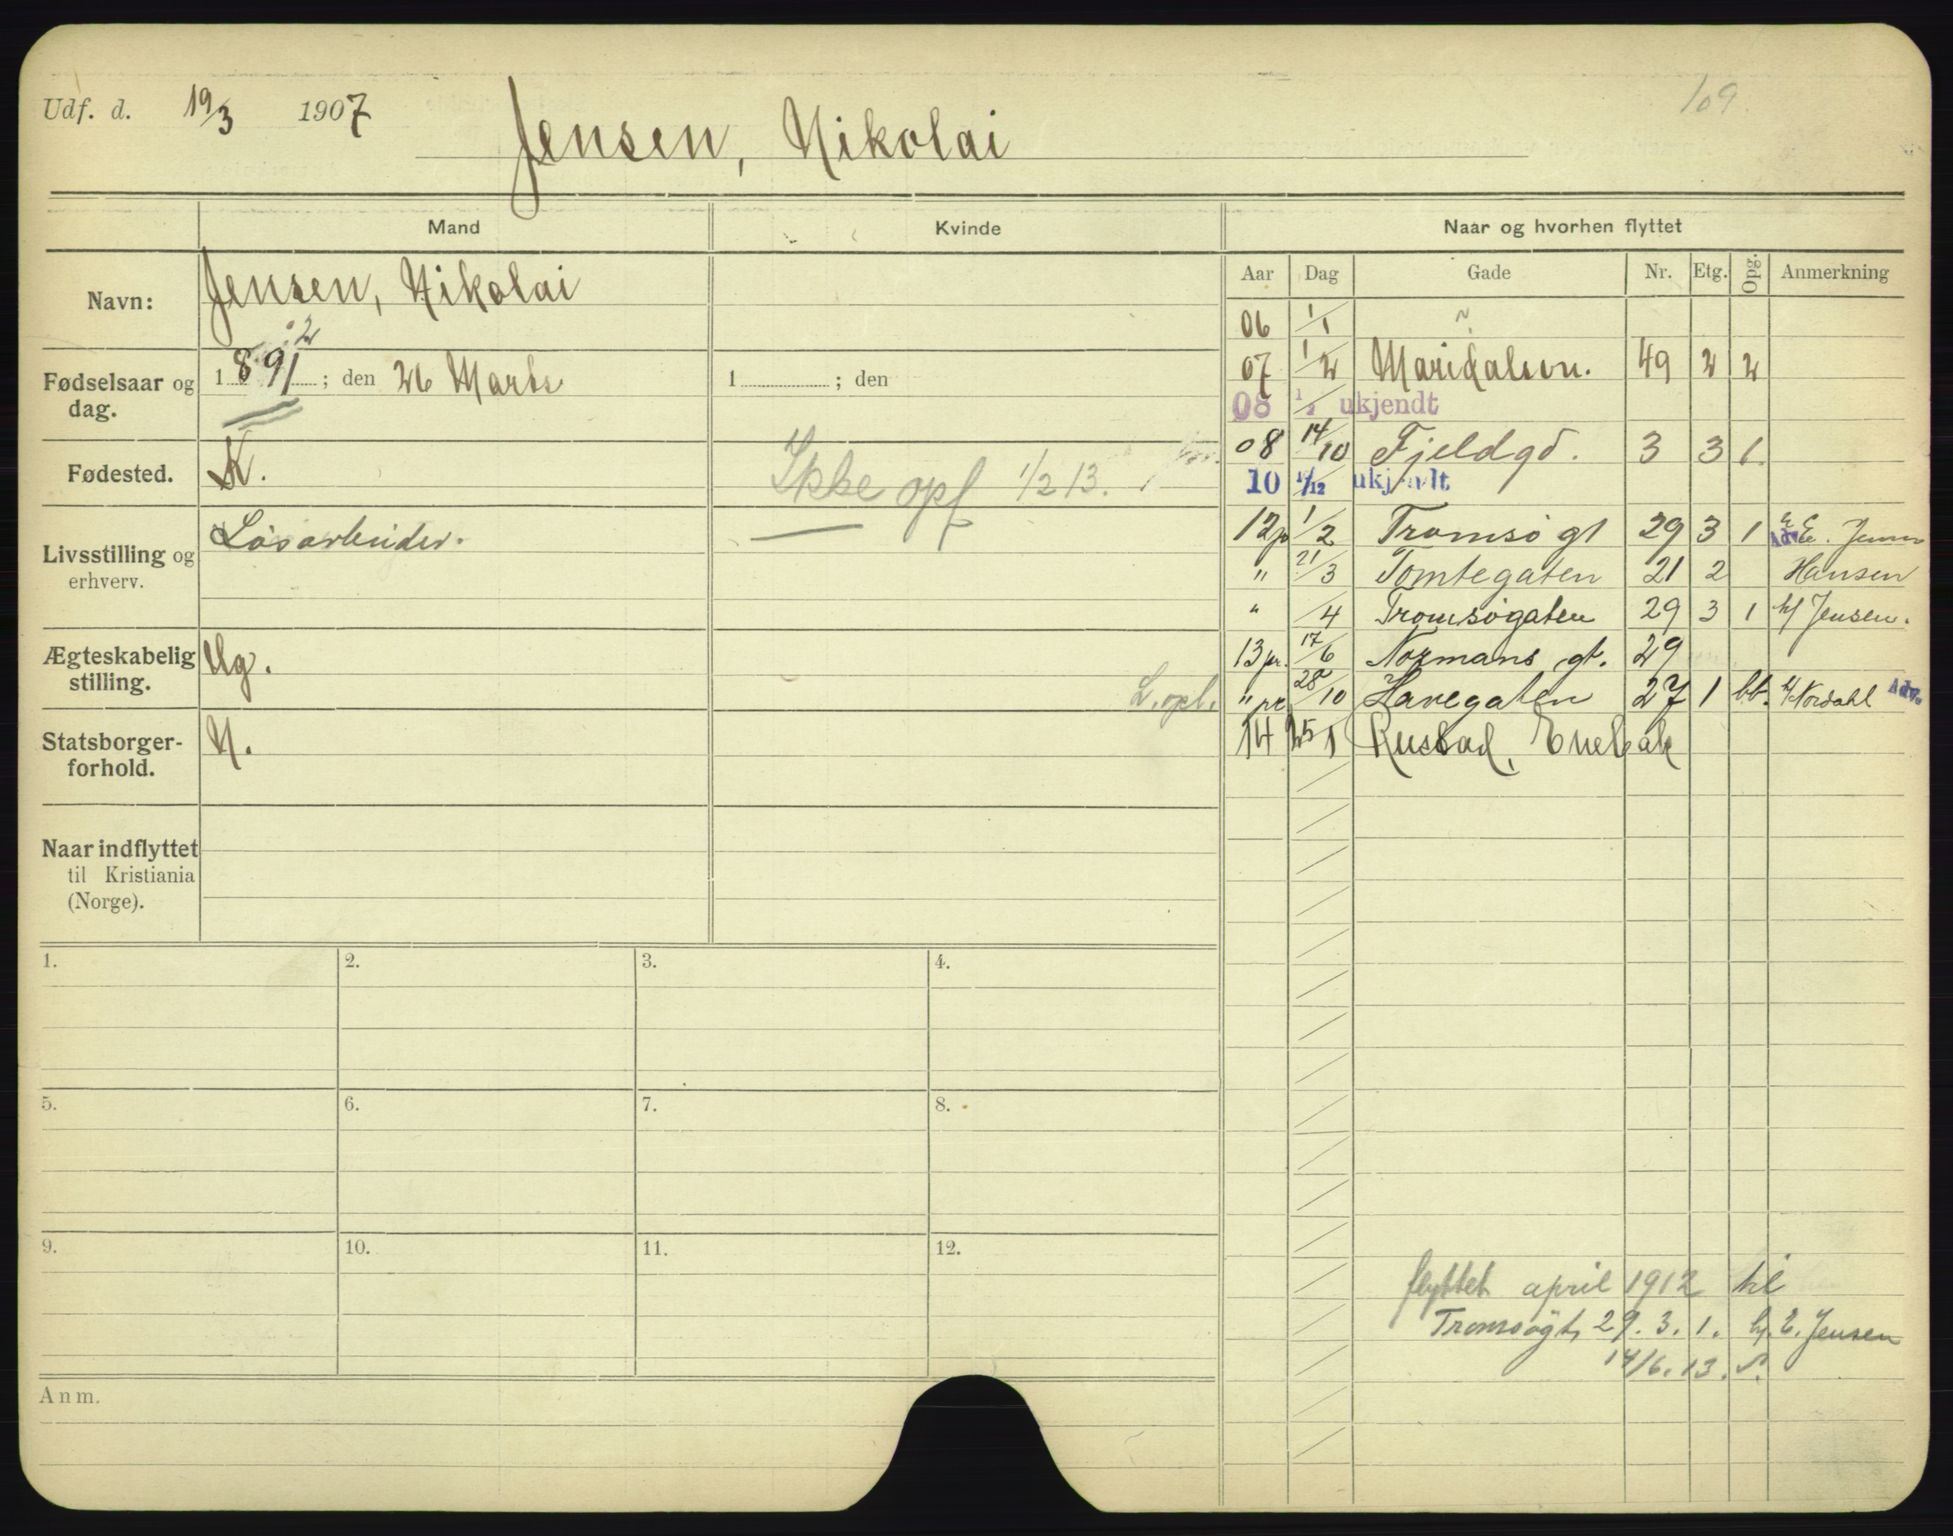 Udf. d. 19/3 1907
Jensen, Nikolai
109
Mand
Kvinde
Naar og hvorhen flyttet
Navn:
Jensen, Nikolai
Fødselsaar og dag.
1891 ; den 26 Marts
2
1 ; den
Fødested.
K.
Ikke opf 1/2 13.
Livsstilling og erhverv.
Løsarbeider.
Ægteskabelig stilling.
Ug.
L. opl.
Statsborger-forhold.
N.
Naar indflyttet til Kristiania (Norge).
Aar Dag Gade Nr. Etg. Opg. Anmerkning
06 1/1
07 1/2 Maridalsvn. 49 2 2
08 1/2 ukjendt
08 14/10 Fjeldgd. 3 3 1.
10 1/12 ukjendt
12 1/2 Tromsø gt 29 3 1 Adv. E. Jensen
" 21/3 Tomtegaten 21 2 Hansen
" /4 Tromsøgaten 29 3 1 h/ Jensen.
13 pr. 17/6 Normans gt. 29
" pr 28/10 Havegaten 27 1 bb. h/ Nordahl Adv.
14 25/1 Rustad, Enebak
1. 2. 3. 4.
5. 6. 7. 8.
9. 10. 11. 12.
flyttet april 1912 til
Tromsøgt, 29. 3. 1. h. E. Jensen
14/6. 13.
Anm.